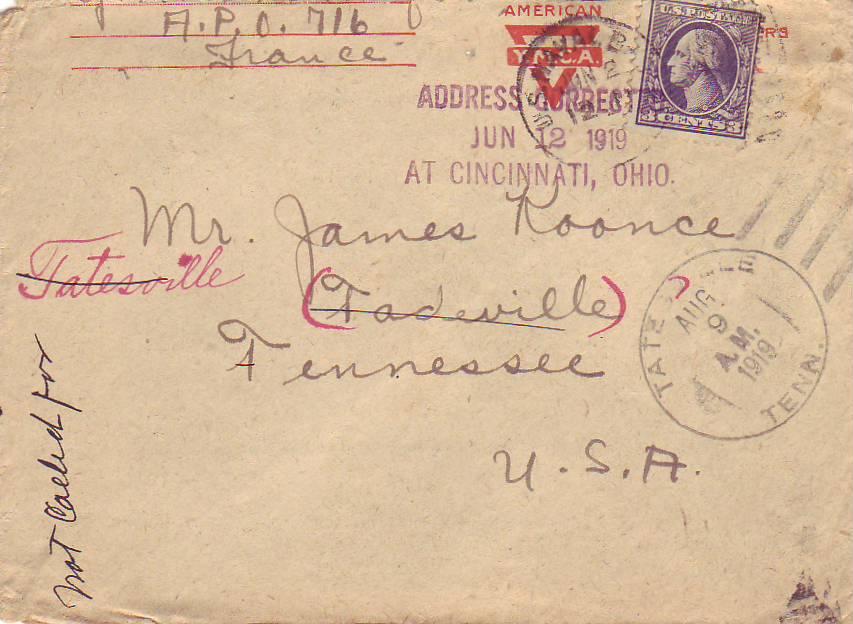 A.P.O. 716
France
AMERICAN
Y.M.C.A
U.S. POSTAGE
3 CENTS 3
ADDRESS CORRECTED
JUN 12 1919
AT CINCINNATI, OHIO.
Mr. James Koonce
Tatesville
(Tadeville)
?
Tennessee
U.S.A.
TATE
AUG
9
A.M.
1919
TENN.
Not Called for